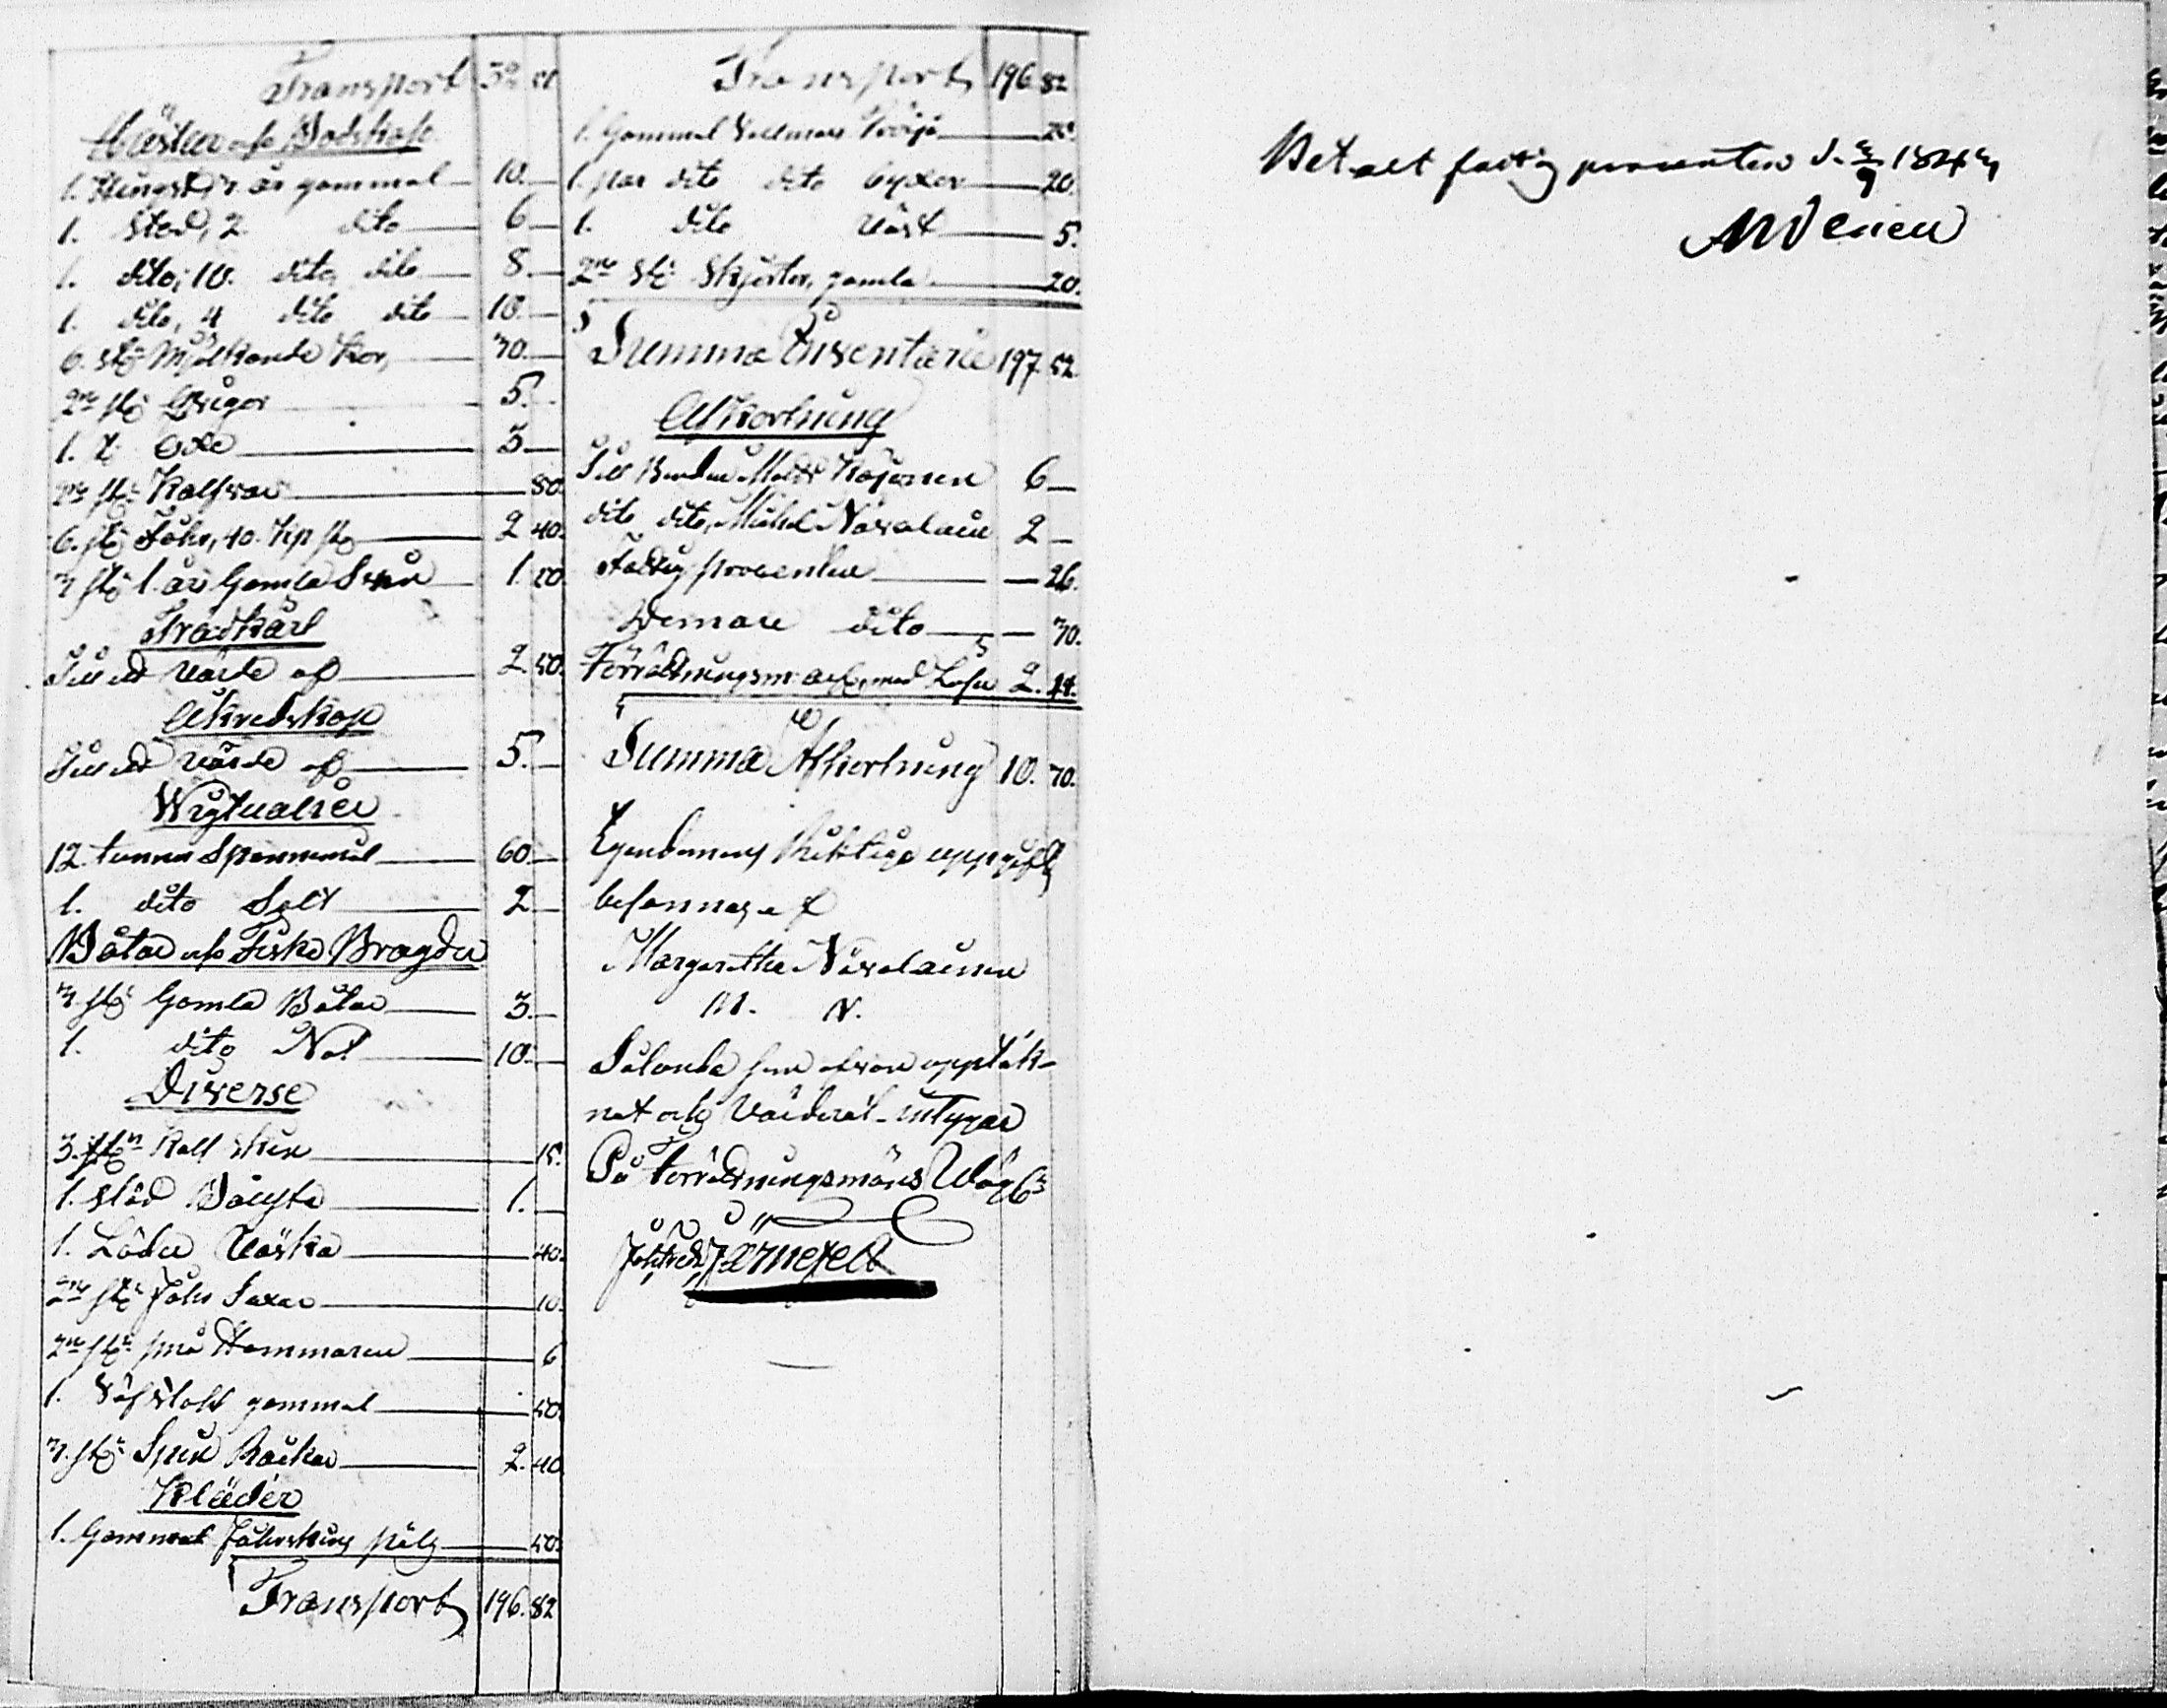 Transport 32
Hästar och Bodskap
1. Hingst, år gammal 10.
1. Sto, 2 dito 6
1. dito, 10. dito dito 8.
1. dito, 4 dito dito 10.
6. st: Mjölkande Kor, 30.
2ne st: Qvigor 5.
1. Oxe 3
2ne st: Kalfvar 80.
6. st: Fåhr, 40. Kp st: 2 40.
3 st: 1. års Gamla Svin 1. 20
Trädkäril
Till ett Värde af 2 50.
Åkredskap
Till ett Värde af 5.
Wigtualier
12. tunnor Spannmål 60
1. dito Salt 2
Båtar och Fiske Bragder
3. st: Gamla Båtar 3.
1. dito Not 10.
Diverse
3. st: Kalf skin 15.
1. 1.
1. Läder Väska 40.
2ne st: Fåhr Saxar 10.
2ne st: små Hammaren 6
1. Väfstohl gammal 50.
3. st: Spin Råckar 2. 40
Kläder
1. Gammal Fåhrskins päls 50.
Transport 196. 82
Transport 196 82
1. Gammal Vallmars Tröija 20.
1. par dito dito byxor 20.
1. dito Väst 5.
2ne st: Skjortor, gamla 20.
Summa Inventarie 197 52
Afkortning
Till Bonden Mats 6
dito dito, Michel Navalain 2
Fattig procenten 26.
dito 30.
Förrättningsm: arf: med Lösn 2. 14.
Summa Afkortning 10. 70.
Egendomens Riktiga uppgift
befannas af
Margaretha Navalainen
M. N.
Sålunda hava upptäk-
nat och Värderat intygar
På Förrättningsmäns Wägar
Järnefelt
Betalt fattig procenten d. 3/9 1843